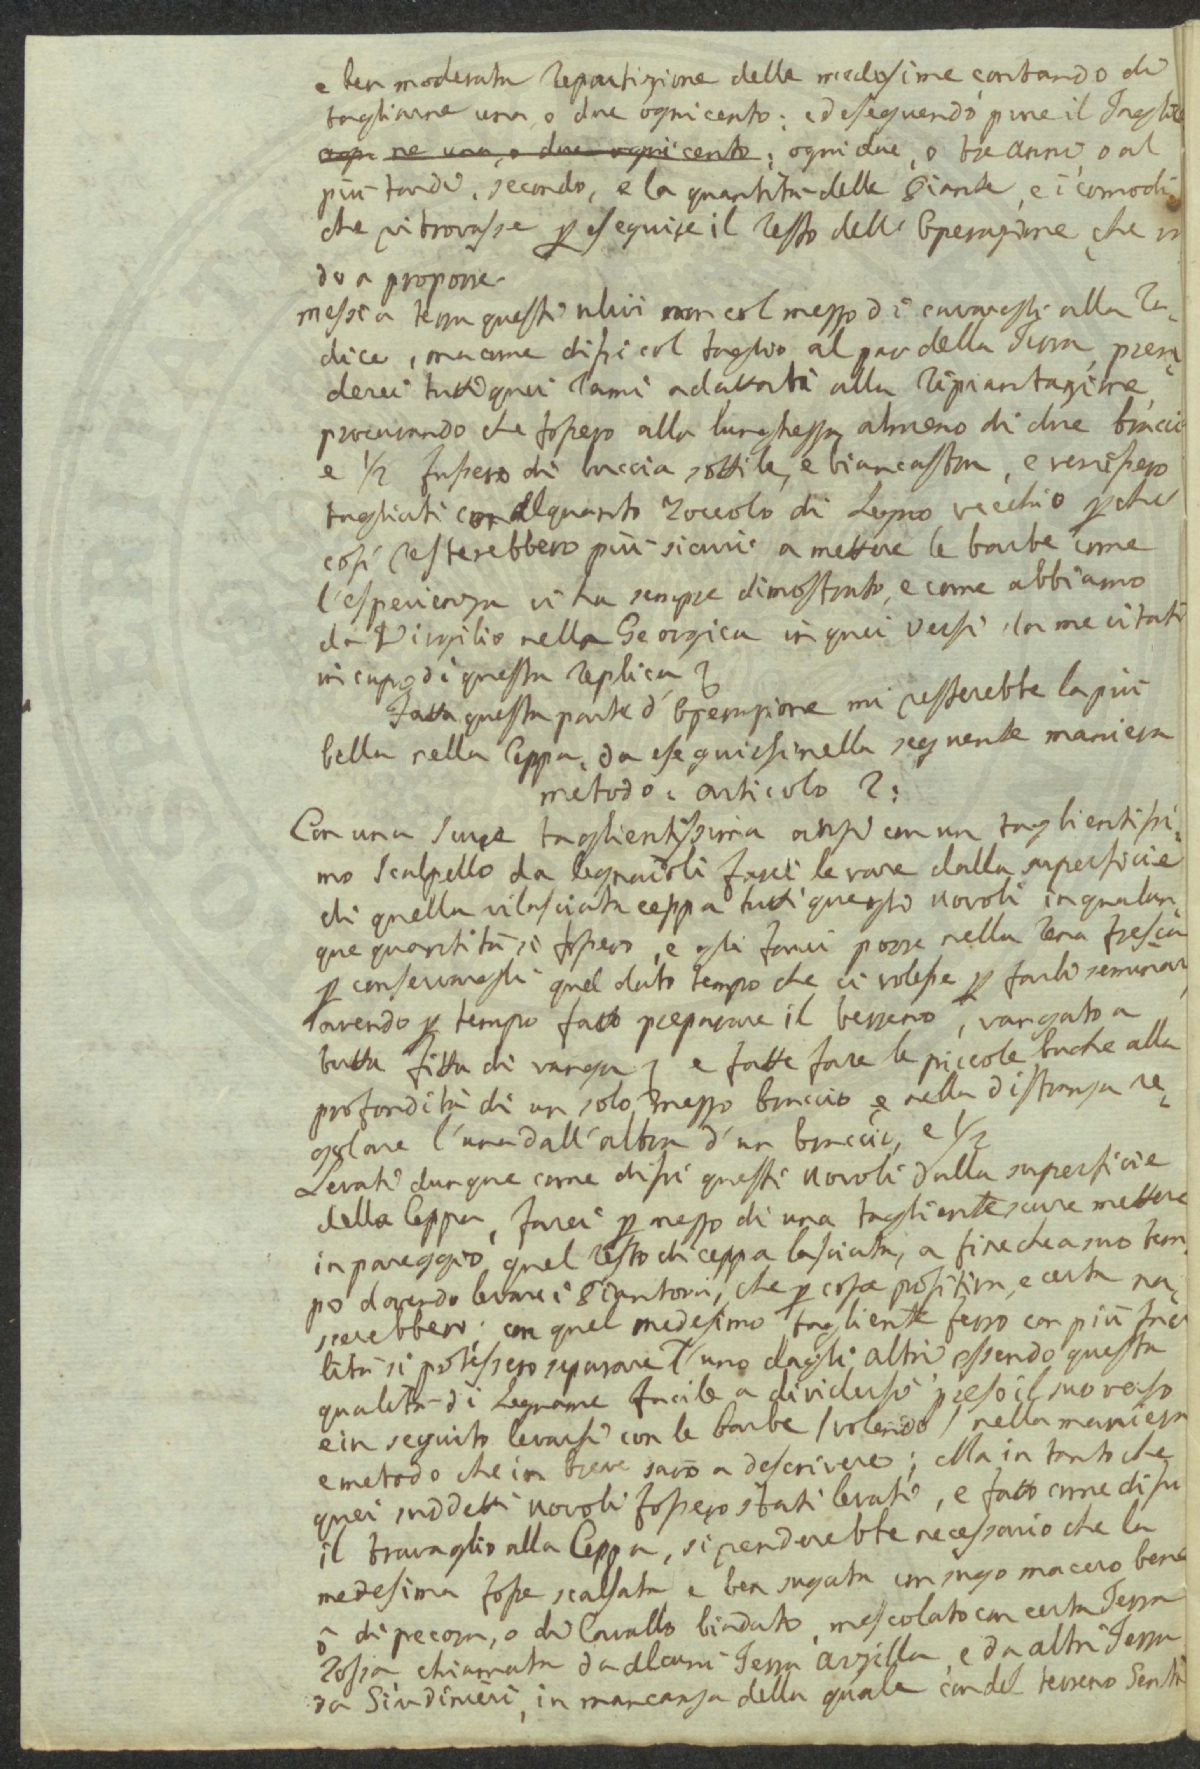 e ben moderata repartizione delle medesime contando di
tagliarne una, o due ogni cento; ed eseguendo pure il Taglio
ogn ne una, o due ogni cento; ogni due, o tre anni, o al
più tardi, secondo, e la quantità delle piante, e i comodi
che vi trovasse p eseguire il resto dell' Operazione che
do a proporre.
messi a terra questi ulivi non col mezzo di cavargli alla ra,
dice, ma come dissi col taglio al par della Terra, pren,
derei tutti quei rami adattati alla ripiantazione,
procurando che fossero alla lunghezza almeno di due braccia
e 1/2 fussero di buccia sottile, e biancastra, e venissero
tagliati con alquanto zoccolo di Legno vecchio p che
così resterebbero più sicuri a mettere le barbe come
l'esperienza vi ha sempre dimostrato, e come abbiamo
da Virgilio nella Georgica in quei versi da me citati
in capo di questa replica
Fatta questa parte d'Operazione mi resterebbe la più
bella nella Ceppa, da eseguirsi nella seguente maniera
metodo: articolo 2:
Con una Scure taglientissima ossi con un taglientissi,
mo Scalpello da legnaioli farei levare dalla superficie
di quella rilasciata ceppa tutti quegli Uovoli in qualun,
que quantità si fossero, e gli farei porre nella rena fresca
p conservargli quel dato tempo che ci volesse p farli seminare,
avendo p tempo fatto preparare il terreno, vangato a
tutta fitta di vanga, e fatte fare le piccole buche alla
profondità di un solo mezzo braccio e nella distanza re,
golare l'una dall'altra d'un braccio, e 1/2
Levati dunque come dissi questi Uovoli dalla superficie
della Ceppa, farei p mezzo di una tagliente scure mettere
in pareggio, quel resto di ceppa lasciata, a fine che a suo tem,
po dovendo levare i piantoni, che p cosa positiva, e certa na,
scerebbero; con quel medesimo tagliente ferro con più faci
lità si potessero separare l'uno dagli altri essendo questa
qualità di Legname facile a dividersi preso il suo verso
e in seguito levarsi con le barbe /volendo/ nella maniera
e metodo che in breve sarò a descrivere; Ma in tanto che
quei suddetti Uovoli fossero stati levati, e fatto come dissi
il travaglio alla Ceppa, si renderebbe necessario che la
medesima fosse scalsata e ben sugata con sugo macero bene
o di pecora, o di Cavallo biadato, mescolato con certa Terra
rossa chiamata da alcuni Terra Argilla, e da altri Terra
da Giardinieri, in mancanza della quale con del terreno